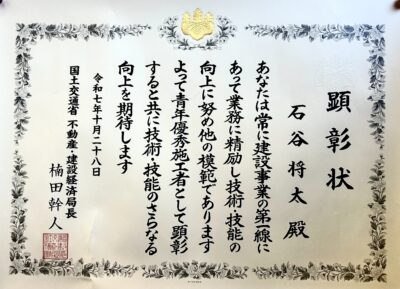 顕彰状
石谷将太 殿
あなたは常に建設事業の第一線に
あって業務に精励し技術・技能の
向上に努め他の模範であります
よって青年優秀施工者として顕彰
すると共に技術・技能のさらなる
向上を期待します
令和七年十月二十八日
国土交通省 不動産・建設経済局長
楠田幹人